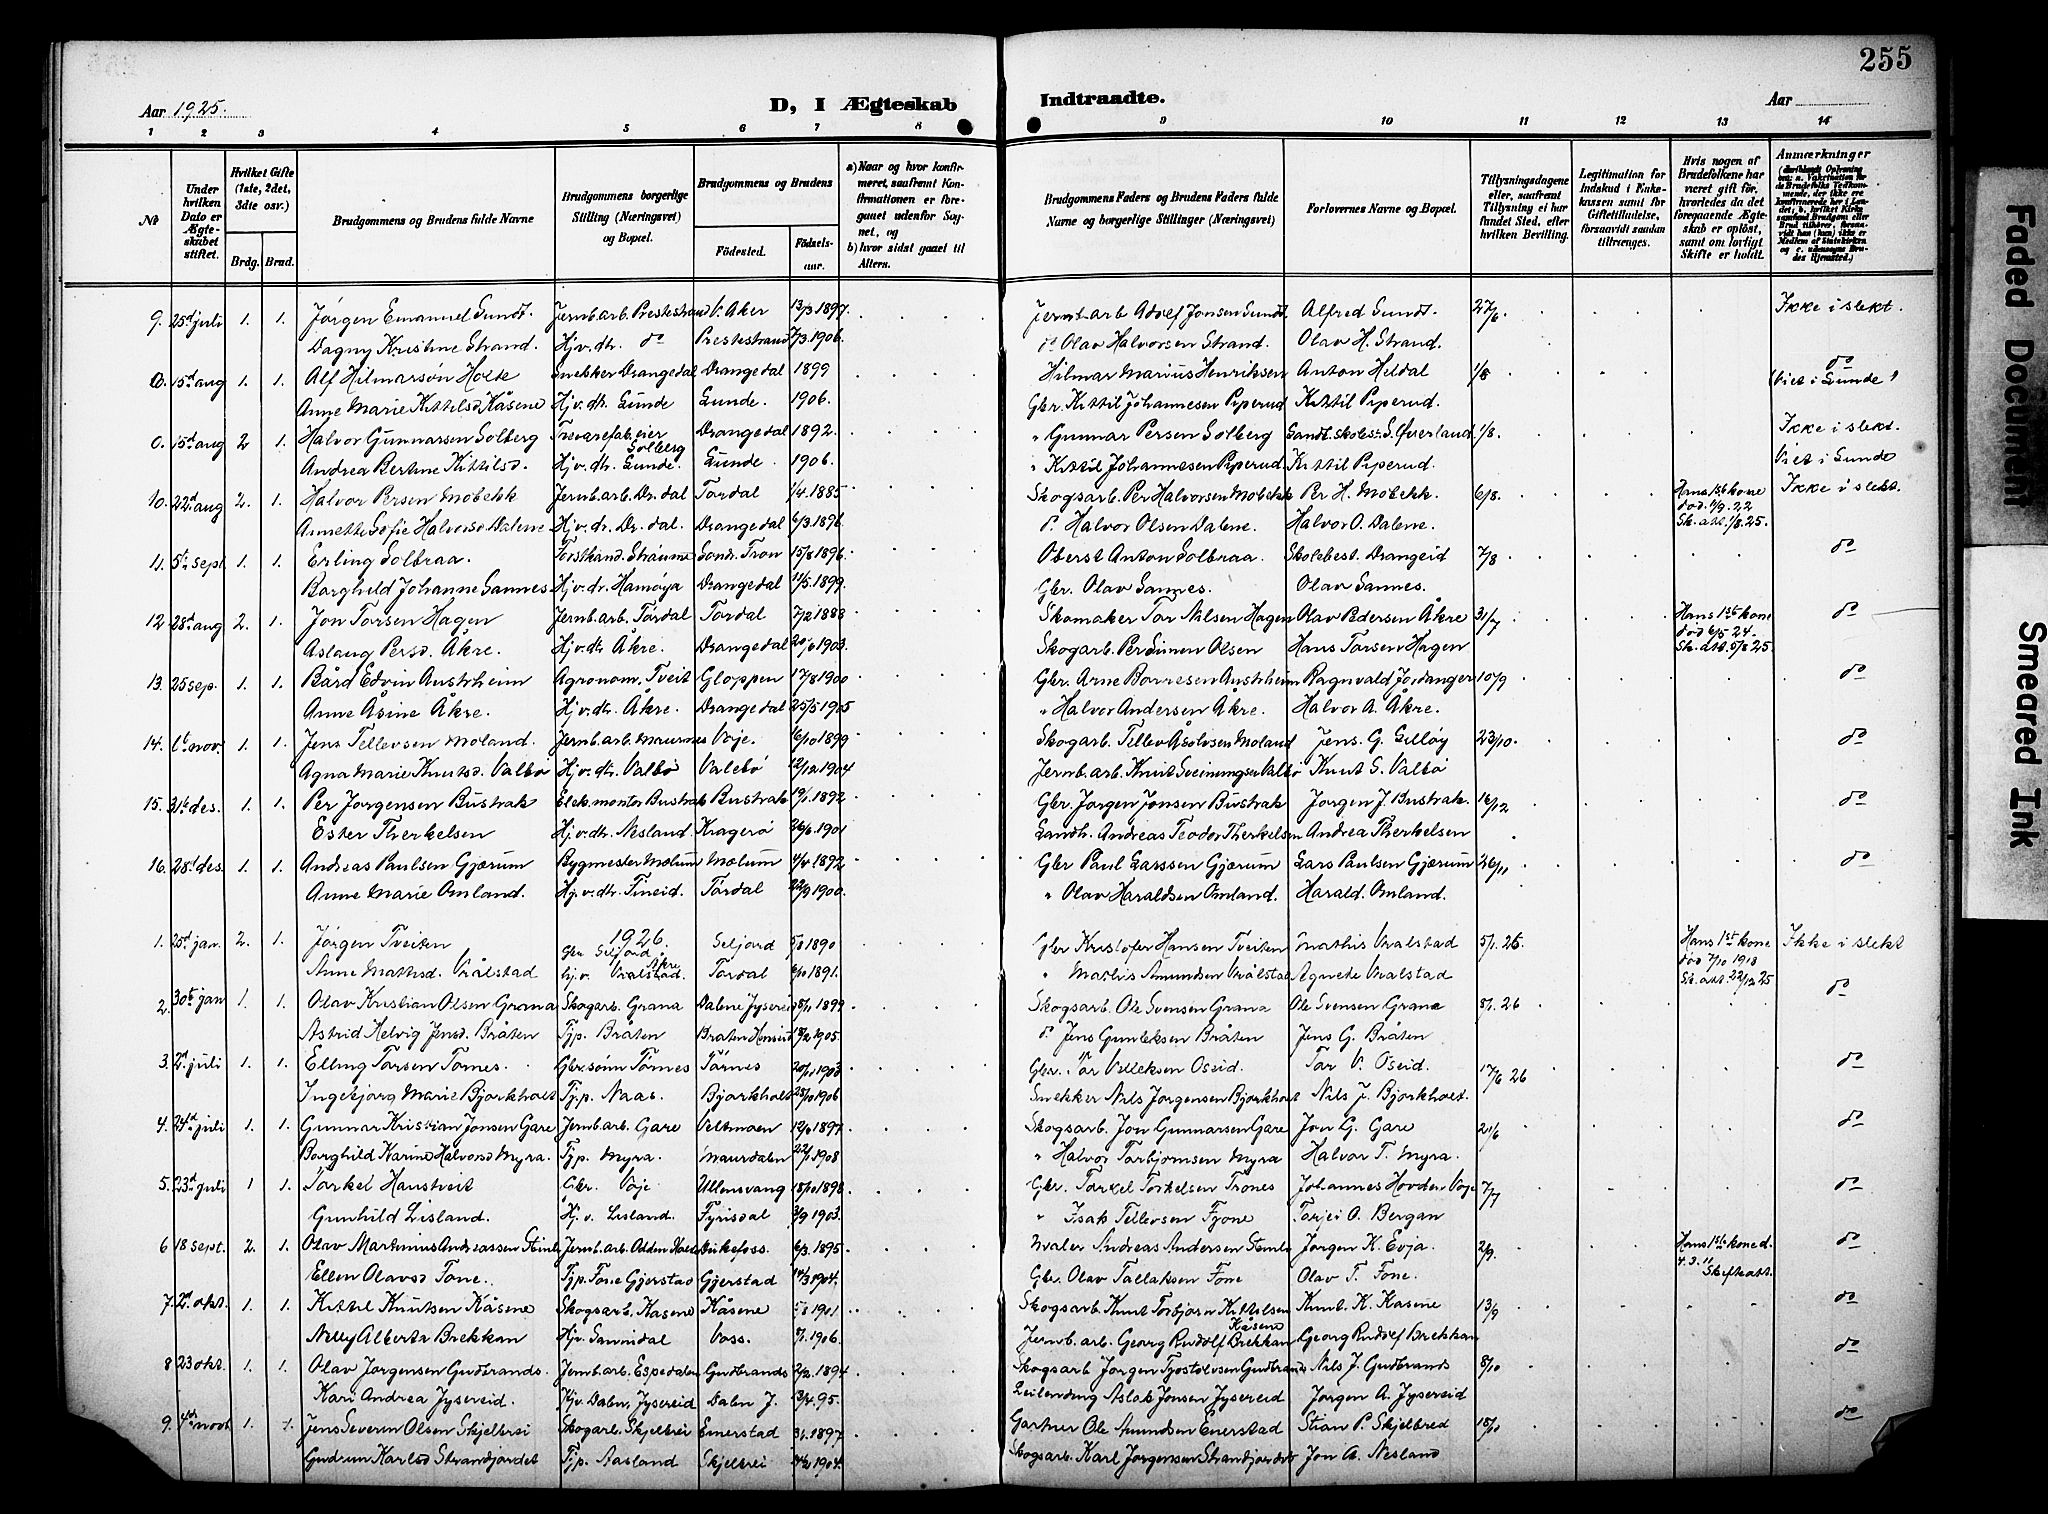 255
Aar 1925.
D, I Ægteskab
Indtraadte.
Aar
1 2 3 4 5 6 7 8 9 10 11 12 13 14
No
Under hvilken Dato er Ægteskabet stiftet.
Hvilket Gifte (1ste, 2det, 3die osv.)
Brdg. Brud.
Brudgommens og Brudens fulde Navne
Brudgommens borgerlige Stilling (Næringsvei) og Bopæl.
Brudgommens og Brudens
Födested. Födselsaar.
a) Naar og hvor konfirmeret, saafremt Konfirmationen er foregaaet udenfor Sognet, og
b) hvor sidst gaaet til Alters.
Brudgommens Faders og Brudens Faders fulde Navne og borgerlige Stillinger (Næringsvei)
Forlovernes Navne og Bopæl.
Tillysningsdagene eller, saafremt Tillysning ei har fundet Sted, efter hvilken Bevilling.
Legitimation for Indskud i Enkekassen samt for Giftetilladelse, forsaavidt saadan tiltrænges.
Hvis nogen af Brudefolkene har været gift før, hvorledes da det foregaaende Ægteskab er oplöst, samt om lovligt Skifte er holdt.
Anmærkninger
9. 25d juli 1. 1. Jørgen Emanuel Sundt Jernb.arb. Prestestrand V. Aker 13/3 1897. Jernb.arb Adolf Jonsen Sundt. Alfred Sundt. 27/6 Ikke i slekt.
Dagny Kristine Strand. Hjv. dtr. do Prestestrand 7/3 1906. do Olav Halvorsen Strand. Olav H. Strand.
0. 15d aug 1. 1. Alf Hilmarsøn Holte Snekker Drangedal Drangedal 1899 Hilmar Marius Henriksen Anton Heldal 1/8 do
Anne Marie Kittilsd Kåsene Hjv. dtr. Lunde Lunde. 1906. Gbr. Kittil Johannesen Piperud Kittil Piperud. (Viet i Lunde)
0. 15d aug 2 1. Halvor Gunnarsen Solberg Trevarefabeier Solberg Drangedal 1892. " Gunnar Persen Solberg Landt.skolest. S. Øverland 1/8. Ikke i slekt.
Andrea Bertine Kittilsd. Hjv. dtr. Lunde. Lunde 1906. " Kittil Johannesen Piperud Kittil Piperud. Viet i Lunde
10. 22d aug 2. 1. Halvor Persen Mobekk Jernb.arb. Dr.dal Tørdal 1/4. 1885 Skogsarb. Per Halvorsen Mobekk Per H. Mobekk. 6/8. Hans 1ste kone død. 1/9. 22 Sk.att. 1/8. 25. Ikke i slekt.
Annette Sofie Halvorsd Dalene Hj.v.dr. Dr.dal. Drangedal 6/3. 1896. do Halvor Olsen Dalene. Halvor O. Dalene.
11. 5te sept 1. 1. Erling Solbraa. Forstkand. Straume Søndr. Tron 15/8 1896. Oberst Anton Solbraa. Skolebest. Drangeid 7/8 do
Borghild Johanne Sannes Hj.v. dr. Hamøya Drangedal 11/5. 1899. Gbr. Olav Sannes. Olav Sannes.
12. 28d aug 2. 1. Jon Torsen Hagen Jernb.arb. Tørdal Tørdal 7/2 1888 Skomaker Tor Nilsen Hagen Olav Pedersen Åkre 31/7 Hans 1ste kone død 6/5 24. Sk. att. 5/8 25. do
Aslaug Persd. Åkre. Hj.v. dtr Åkre. Drangedal 20/6 1903. Skogarb. Per Simen Olsen Hans Torsen Hagen
13. 25 sep. 1. 1. Bård Edvin Austrheim Agronom. Tveit Gloppen 17/8 1900 Gbr. Arne Borresen Austrheim Ragnvald Jordanger 10/9 do
Anne Åsine Åkre. Hjv. dtr. Åkre. Drangedal 25/5 1905 " Halvor Andersen Åkre. Halvor A. Åkre.
14. 1ste nov. 1. 1. Jens Tellevsen Moland. Jernb.arb. Maurnes Voje. 6/10 1899 Skogarb. Tellev Asolvsen Moland Jens. G. Lilløy 23/10. do
Agna Marie Knutsd. Valbø Hj.v.dtr. Valbø Valebø 12/12 1904 Jernb.arb. Knut Sveiningsen Valbø Knut S. Valbø
15. 31te des. 1. 1. Per Jørgensen Bustrak Elek.montør Bustrak Bustrak 19/1. 1892 Gbr. Jørgen Jonsen Bustrak Jørgen J. Bustrak. 16/12 do
Ester Therkelsen Hj.v. dtr. Nesland. Kragerø 26/6. 1901 Landh. Andreas Teodor Therkelsen Andrea Therkelsen
16. 28d des. 1. 1. Andreas Paulsen Gjærum Bygmester Molum Molum 4/4. 1892 Gbr Paul Larssen Gjærum Lars Paulsen Gjærum 26/11 do
Anne Marie Omland. Hj.v.dtr. Tineid. Tørdal 22/9 1900. " Olav Haraldsen Omland. Harald. Omland.
1926.
1. 25d jan. 2. 1. Jørgen Tveiten Gbr Seljord Seljord 5/8 1890 Gbr Kristofer Hansen Tveiten Mathis Vrålstad 5/1. 25 Hans 1ste kone død 7/10 1918 Sk. att. 22/12 25 Ikke i slekt
Anne Mathisd. Vrålstad hj.v. Vrålstad. Åkre Tørdal 6/10 1891. " Mathis Amundsen Vrålstad Agnete Vrålstad do
2. 30te jan 1. 1. Olav Kristian Olsen Grana Skogarb. Grana Dalene Jysereid 28/11 1899 Skogsarb. Ole Svensen Grana Ole Svensen Grana 8/1. 26
Astrid Helvig Jensd. Bråten Tjp. Bråten Braten Henseid 18/2 1905. do Jens Gunleksen Bråten Jens G. Bråten.
3. 2d juli 1. 1. Elling Torsen Tørnes. Gbr.sønn Tørnes Tørnes 20/1 1903 Gbr. Tor Villeksen Oseid. Tor V. Oseid. 17/6 26 do
Ingebjørg Marie Bjorkholt Tj.p. Naas. Bjørkholt 25/10 1906 Snekker Nils Jørgensen Bjorkholt Nils J. Bjørkholt.
4. 24d juli 1. 1. Gunnar Kristian Jonsen Gare Jernb.arb. Gare Veltmoen 12/6 1897 Skogsarb. Jon Gunnarsen Gare Jon G. Gare 21/6 do
Borghild Karine Halvorsd Myra. Tjp. Myra. Maurdalen 22/1 1908 " Halvor Torbjørnsen Myra Halvor T. Myra.
5. 23d juli 1 1. Torkel Haustveit Gbr. Voje Ullensvang 18/10 1898 Gbr. Torkel Torkelsen Trones Johannes Hovden Voje 7/7 do
Gunhild Lisland. Hj.v. Lisland. Fyrisdal 3/9 1903. " Isak Tellevsen Fjone Torjei O. Bergan
6 18 sept. 2. 1. Olav Martinius Andreassen Stenli Jernb.arb. Odden Birkefoss. 6/3. 1895 Maler Andreas Andersen Stenli Jørgen K. Evja. 2/9. Hans 1ste kone d. 4.3.11 Skifteatt. do
Ellen Olavsd Fone. Tjp. Fone Gjerstad Gjerstad 14/3 1904. Gbr. Olav Tallaksen Fone Olav T. Fone.
7. 2d okt. 1. 1. Kittil Knutsen Kåsene Skogsarb. Kasene Kåsene 5/8 1901 Skogsarb. Knut Torbjørn Kittelsen Kåsene Knut. K. Kasene 13/9 do
Nelly Alberta Brekkan Hjv. Sannidal Voss. 9/1. 1906. Jernb.arb. Georg Rudolf Brekkan Georg Rudolf Brekkan do
8 23 okt. 1. 1. Olav Jørgensen Gudbrands. Jernb.arb. Espedalen Gudbrands 2/12. 1894 Skogsarb Jørgen Tjostolvsen Gudbrands Nils J. Gudbrands 8/10
Kari Andrea Jysereid. Hjv. Dalen, Jysereid Dalen J. 12/4. 95. Leilending Aslak Jonsen Jysereid Jørgen A. Jysereid
9. 4de nov 1. 1. Jens Severin Olsen Skjelbrei Skogarb. Skjelbrei Enerstad 3/1. 1897 Gartner Ole Amundsen Enerstad Stian P. Skjelbred 15/10 do
Gudrun Karlsd Strandjordet Tjp. Aasland Skjelbrei 14/2 1904. Skogsarb. Karl Jørgensen Strandjordet Jon A. Nesland
Faded Document
Smeared Ink